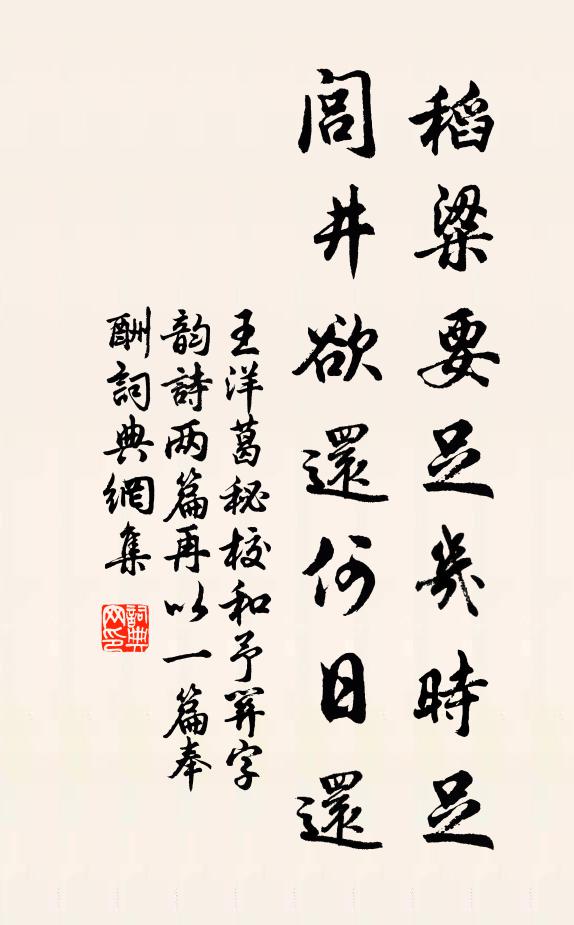 稻粱要足幾時足
閭井欲還何日還
王洋葛秘校和予關字
韵詩两篇再以一篇奉
酬詞典網集
詞典网印